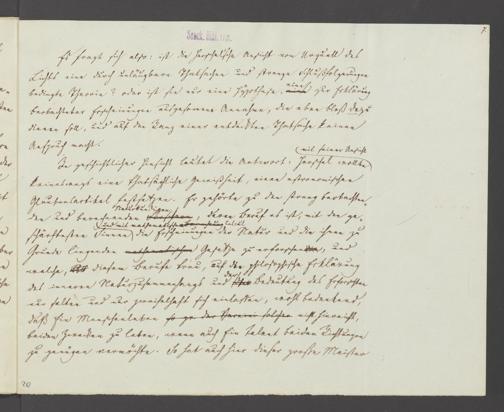 7.
Es fragt sich also: ist die Herschelsche Ansicht vom Urquell des
Lichts eine durch unläugbare Thatsachen und strenge Schlußfolgerungen
bedingte Theorie? oder ist sie nur eine Hypothese, eine zur Erklärung
beobachteter Erscheinungen aufgenommene Annahme, die eben bloß dazu
dienen soll, und auf den Rang einer entdeckten Thatsache keinen
Anspruch macht.
In geschichtlicher Hinsicht lautet die Antwort: Herschel wollte
mit seiner Ansicht
keineswegs eine thatsächliche Gewißheit, einen astronomischen
Glaubensartikel festsetzen. Er gehörte zu den streng beobachtenden
und berechnenden deren Beruf es ist, mit den
Sinnen die Erscheinungen der Natur und die ihnen zu
Grunde liegenden Gesetze zu erforschen, und
welche, diesem Berufe treu, auf die philosophische Erklärung
des inneren Naturzusammenhangs und Bedeutung des Erforschten
nur selten und nur zweifelhaft sich einlassen, wohl bedenkend,
daß ein Menschenleben nicht hinreicht,
beiden Zwecken zu leben, wenn auch ein Talent beiden Richtungen
zu genügen vermöchte. So hat auch hier dieser große Meister